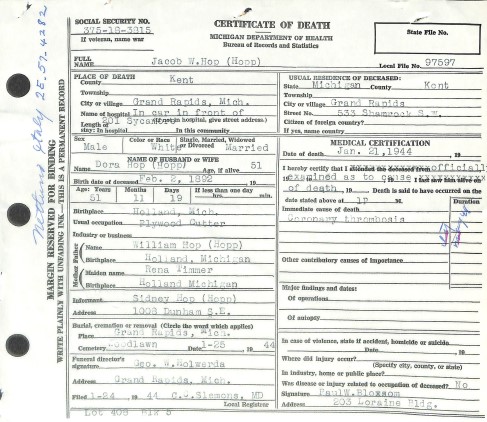 CERTIFICATE OF DEATH
SOCIAL SECURITY NO.
375-18-3815
If veteran, name war
MICHIGAN DEPARTMENT OF HEALTH
Bureau of Records and Statistics
State File No.
FULL NAME Jacob W. Hop (Hopp)
Local File No. 97597
PLACE OF DEATH
County Kent
Township
City or village Grand Rapids, Mich.
Name of hospital In car in front of
(If not in hospital, give street address.)
201 Sycamore
Length of stay: In hospital In this community
USUAL RESIDENCE OF DECEASED:
State Michigan County Kent
Township
City or village Grand Rapids
Street No. 533 Shamrock S.W.
Citizen of foreign country?
If yes, name country
Sex Male
Color or Race White
Single, Married, Widowed or Divorced Married
NAME OF HUSBAND OR WIFE
Dora Hop (Hopp) Age, if alive 51
Birth date of deceased Feb. 2, 1892
Age: Years 51 Months 11 Days 19 If less than one day hrs. min.
Birthplace Holland, Mich.
Usual occupation Plywood Cutter
Industry or business
Father
Name William Hop (Hopp)
Birthplace Holland, Michigan
Mother
Maiden name Rena Timmer
Birthplace Holland Michigan
Informant Sidney Hop (Hopp)
1008 Dunham S.E.
Burial, cremation or removal (Circle the word which applies)
Place Grand Rapids, Mich.
Cemetery Woodlawn Date 1-25 19 44
Funeral director's signature Geo. W. Holwerda
Address Grand Rapids, Mich.
Filed 1-24 19 44 C.C. Slemons, MD
Local Registrar
Lot 409 Blk 5
MEDICAL CERTIFICATION
Date of death Jan. 21, 1944
I hereby certify that I attended the deceased from officially
examined as to cause
of death 19 Death is said to have occurred on the
date stated above at 1P M.
Immediate cause of death
Coronary thrombosis
Duration
Other contributory causes of Importance
Major findings and dates:
Of operations
Of autopsy
In case of violence, state if accident, homicide or suicide
Where did injury occur?
(Specify city, county, or state)
In industry, home or public place?
Was disease or injury related to occupation of deceased? No
Signature Paul W. Bloxsom
Address 203 Loraine Bldg.
MARGIN RESERVED FOR BINDING
WRITE PLAINLY WITH UNFADING INK—THIS IS A PERMANENT RECORD